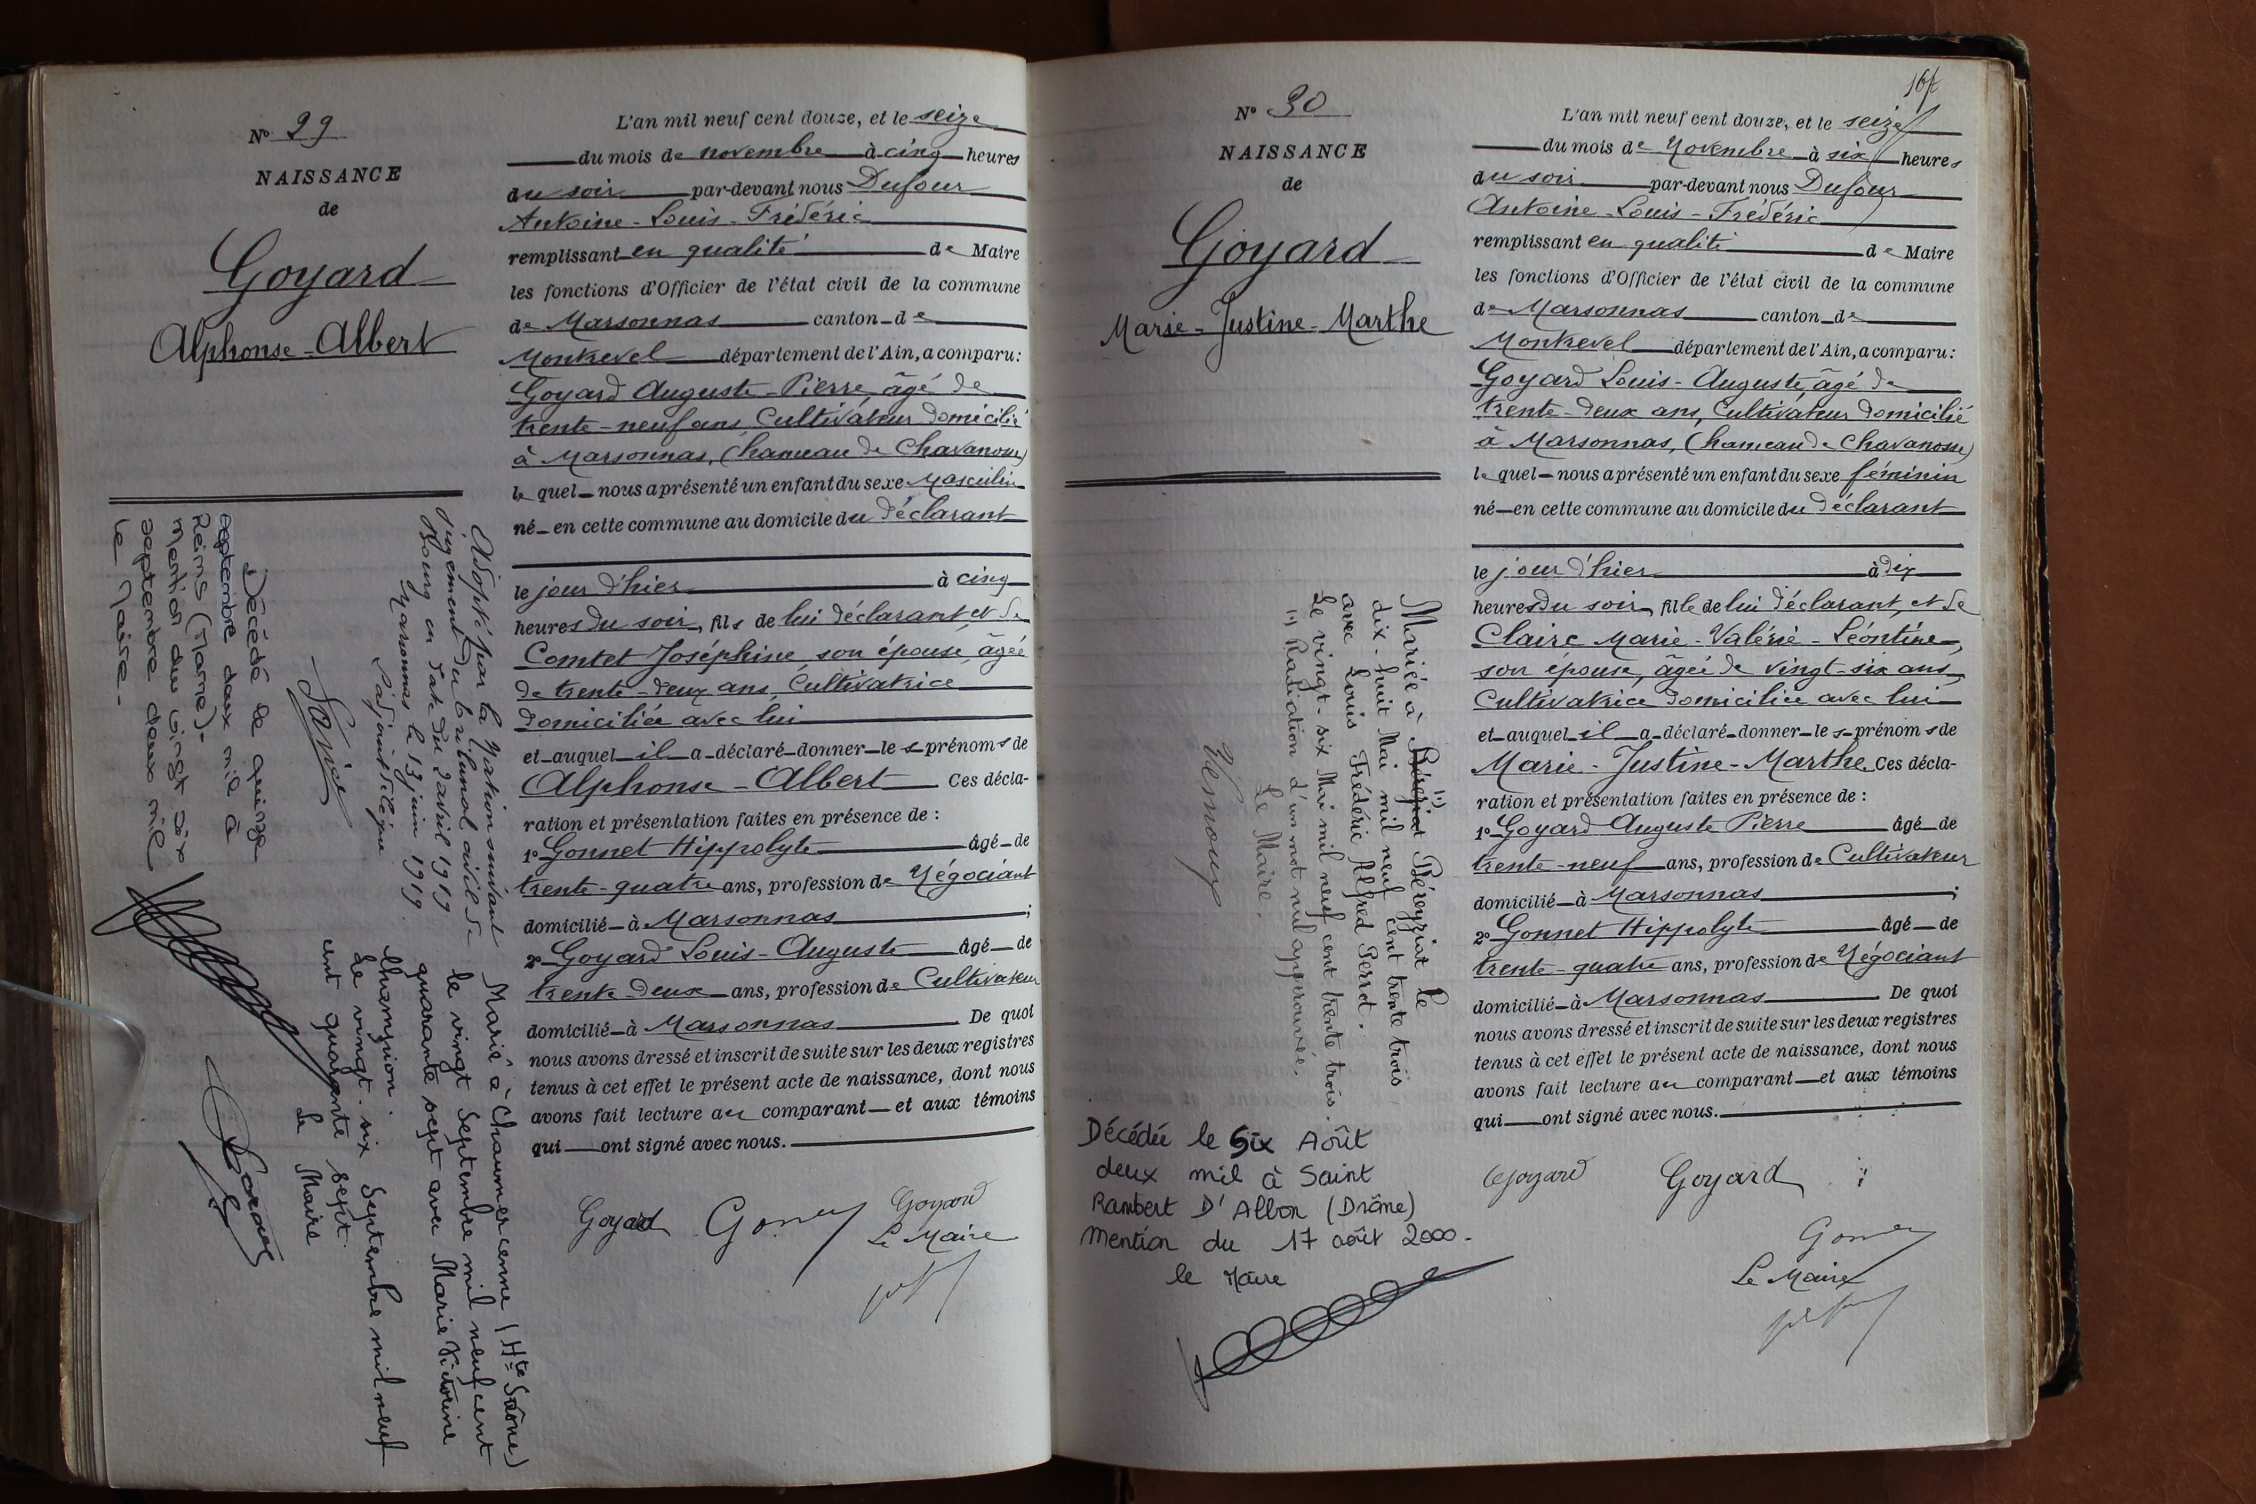 Nº 29
NAISSANCE
de
Goyard
Alphonse-Albert
L'an mil neuf cent douze, et le seize
du mois de novembre à cinq heures
du soir par-devant nous Dufour
Antoine-Louis-Frédéric
remplissant en qualité de Maire
les fonctions d'Officier de l'état civil de la commune
de Marsonnas canton de
Montrevel département de l'Ain, a comparu :
Goyard Auguste-Pierre, âgé de
trente-neuf ans, Cultivateur domicilié
à Marsonnas, (hameau de Chavanosse)
lequel nous a présenté un enfant du sexe Masculin
né en cette commune au domicile du déclarant
le jour d'hier à cinq
heures du soir, fils de lui déclarant et de
Comtet Joséphine, son épouse, âgée
de trente-deux ans, Cultivatrice
domiciliée avec lui
et auquel il a déclaré donner les prénoms de
Alphonse-Albert Ces décla-
ration et présentation faites en présence de :
1º Gonnet Hippolyte âgé de
trente-quatre ans, profession de Négociant
domicilié à Marsonnas ;
2º Goyard Louis-Auguste âgé de
trente-deux ans, profession de Cultivateur
domicilié à Marsonnas De quoi
nous avons dressé et inscrit de suite sur les deux registres
tenus à cet effet le présent acte de naissance, dont nous
avons fait lecture au comparant et aux témoins
qui ont signé avec nous.
Goyard Gonnet Goyard
Le Maire
Adopté par la Nation suivant
jugement du tribunal civil de
Bourg en date du 2 avril 1919
Marsonnas le 13 juin 1919
L'adjoint délégué
Marié à Chauvirey (Hte Saône)
le vingt Septembre mil neuf cent
quarante sept avec Marie Victorine
Champion.
Le vingt-six Septembre mil neuf
cent quarante sept.
Le Maire
Décédé le quinze
septembre deux mil à
Reims (Marne).-
Mention du vingt six
septembre deux mil
Le Maire.-
164
Nº 30
NAISSANCE
de
Goyard
Marie-Justine-Marthe
L'an mil neuf cent douze, et le seize
du mois de Novembre à six heures
du soir par-devant nous Dufour
Antoine-Louis-Frédéric
remplissant en qualité de Maire
les fonctions d'Officier de l'état civil de la commune
de Marsonnas canton de
Montrevel département de l'Ain, a comparu :
Goyard Louis-Auguste, âgé de
trente-deux ans, Cultivateur domicilié
à Marsonnas, (hameau de Chavanosse)
lequel nous a présenté un enfant du sexe féminin
né en cette commune au domicile du déclarant
le jour d'hier à dix
heures du soir, fille de lui déclarant, et de
Claire Marie-Valérie-Léontine,
son épouse, âgée de vingt-six ans,
Cultivatrice domiciliée avec lui
et auquel il a déclaré donner les prénoms de
Marie-Justine-Marthe. Ces décla-
ration et présentation faites en présence de :
1º Goyard Auguste Pierre âgé de
trente-neuf ans, profession de Cultivateur
domicilié à Marsonnas ;
2º Gonnet Hippolyte âgé de
trente-quatre ans, profession de Négociant
domicilié à Marsonnas De quoi
nous avons dressé et inscrit de suite sur les deux registres
tenus à cet effet le présent acte de naissance, dont nous
avons fait lecture au comparant et aux témoins
qui ont signé avec nous.
Goyard Goyard
Gonnet
Le Maire
Mariée à Béréziat (1) Béreyziat le
dix-huit Mai mil neuf cent trente trois
avec Louis Frédéric Alfred Perrot.
Le vingt-six Mai mil neuf cent trente trois.
(1) Radiation d'un mot nul approuvée.
Le Maire.
Décédée le Six Août
deux mil à Saint
Rambert D'Albon (Drôme)
Mention du 17 août 2000.
le Maire